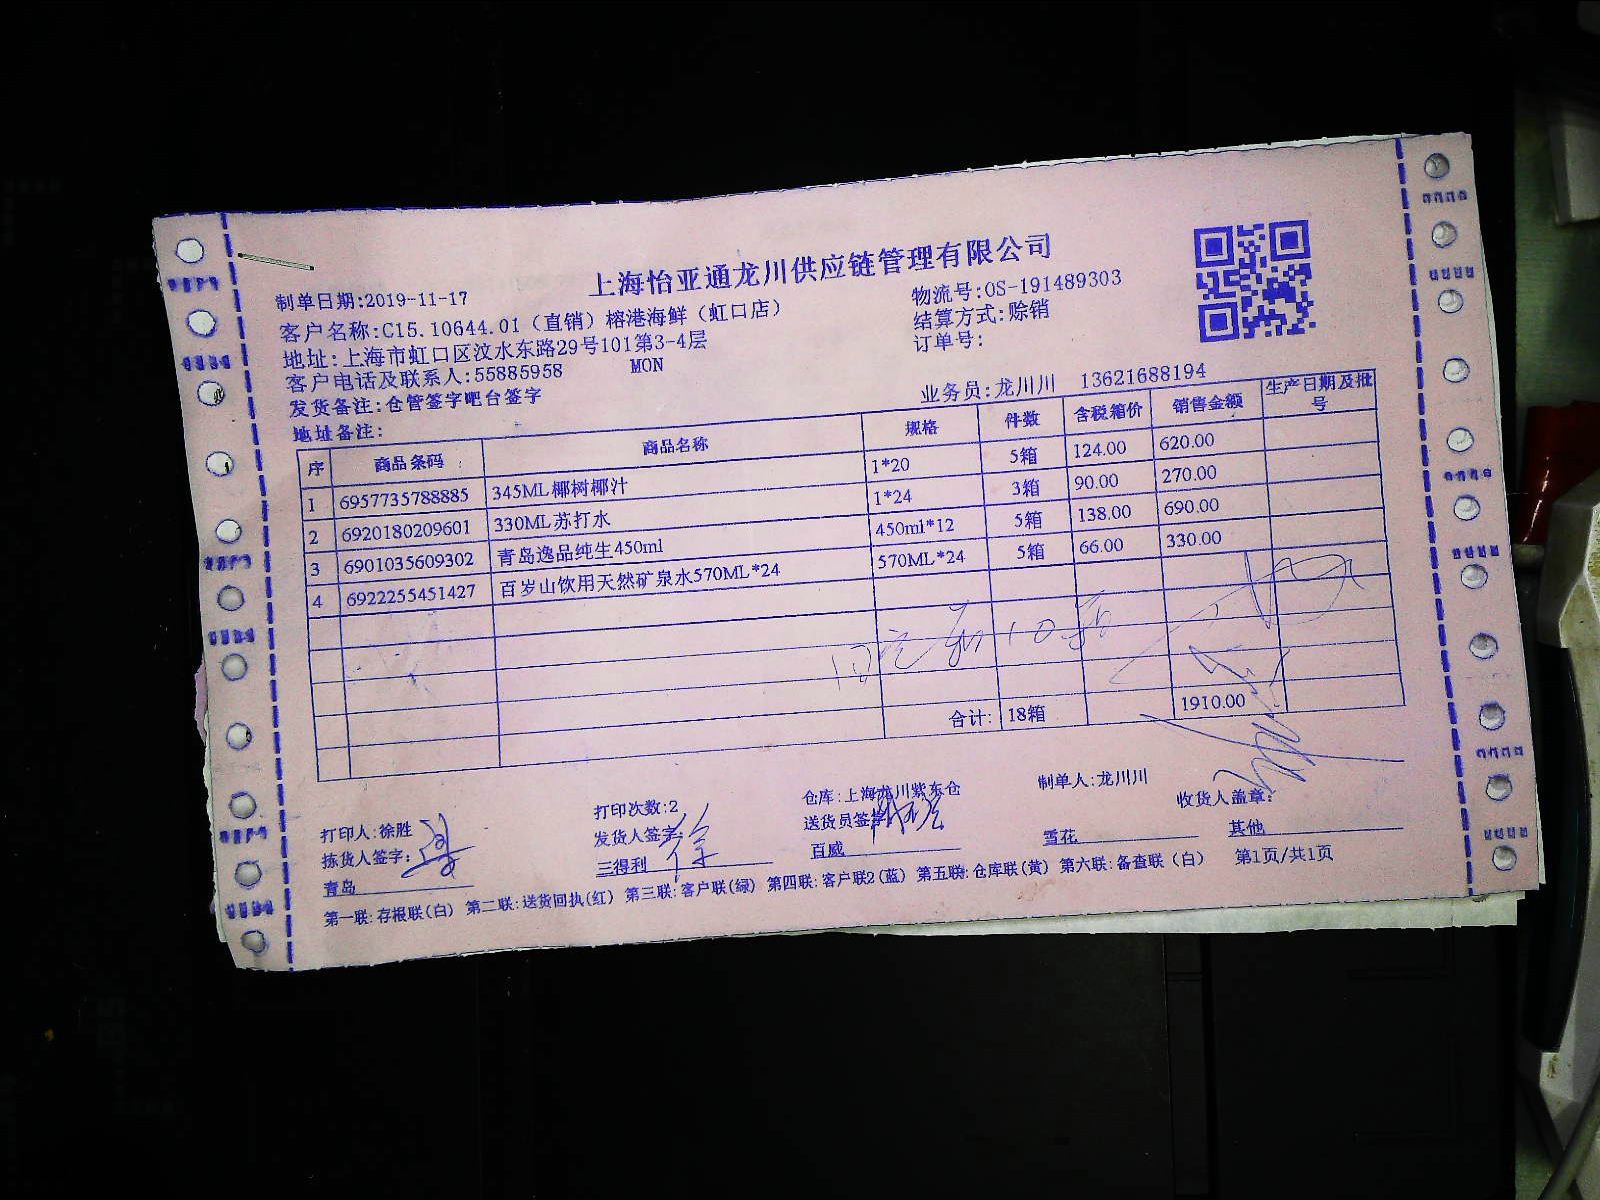 上海怡亚通龙川供应链管理有限公司
制单日期:2019-11-17
物流号:OS-191489303
客户名称:C15.10644.01（直销）榕港海鲜（虹口店）
结算方式:赊销
地址:上海市虹口区汶水东路29号101第3-4层
订单号:
客户电话及联系人:55885958 MON
发货备注:仓管签字吧台签字
业务员:龙川川 13621688194
地址备注:
序 商品条码 商品名称 规格 件数 含税箱价 销售金额 生产日期及批号
1 6957735788885 345ML椰树椰汁 1*20 5箱 124.00 620.00
2 6920180209601 330ML苏打水 1*24 3箱 90.00 270.00
3 6901035609302 青岛逸品纯生450ml 450ml*12 5箱 138.00 690.00
4 6922255451427 百岁山饮用天然矿泉水570ML*24 570ML*24 5箱 66.00 330.00
合计: 18箱 1910.00
打印人:徐胜 打印次数:2 仓库:上海龙川紫东仓 制单人:龙川川
拣货人签字: 发货人签字: 送货员签字 收货人盖章:
青岛 三得利 百威 雪花 其他
第一联:存根联(白) 第二联:送货回执(红) 第三联:客户联(绿) 第四联:客户联2(蓝) 第五联:仓库联(黄) 第六联:备查联(白) 第1页/共1页